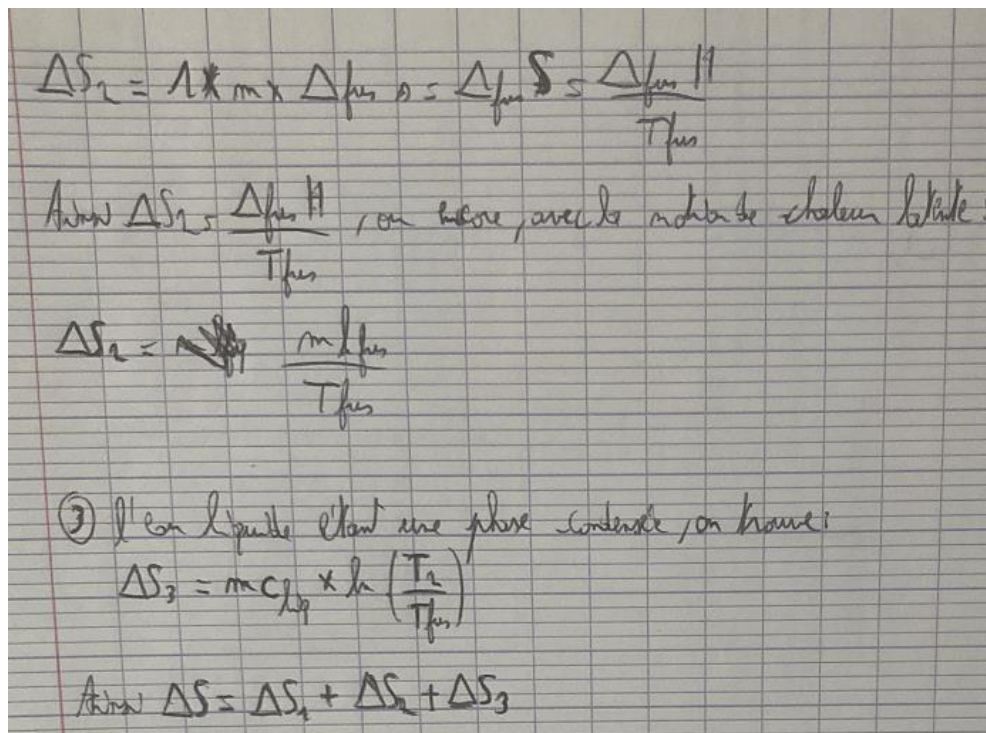 ΔS₂ = 1 × m × Δfus s = Δfus S = Δfus H / Tfus
Ainsi ΔS₂ = Δfus H / Tfus , ou encore, avec la notion de chaleur latente :
ΔS₂ = m lfus / Tfus
③ l'eau liquide étant une phase condensée, on trouve :
ΔS₃ = m cliq × ln (T₂ / Tfus)
Ainsi ΔS = ΔS₁ + ΔS₂ + ΔS₃